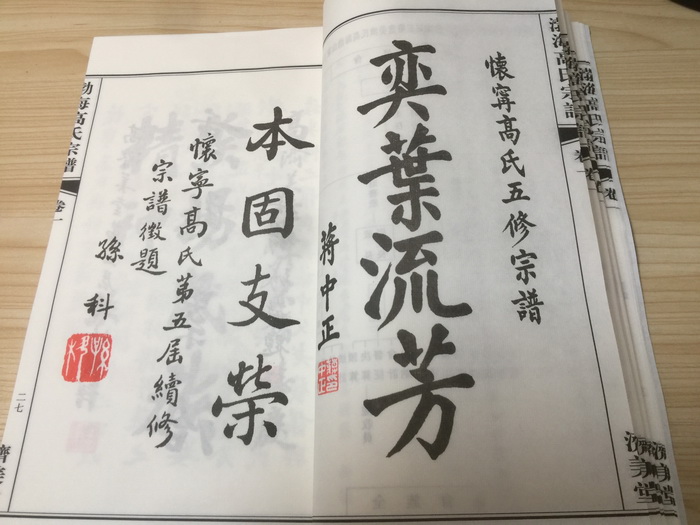 渤海高氏宗譜
卷一
懷寧高氏五修宗譜
奕葉流芳
蔣中正
濟美堂
本固支榮
懷寧高氏第五屆續修
宗譜徵題
孫科
渤海高氏宗譜
卷一
二七